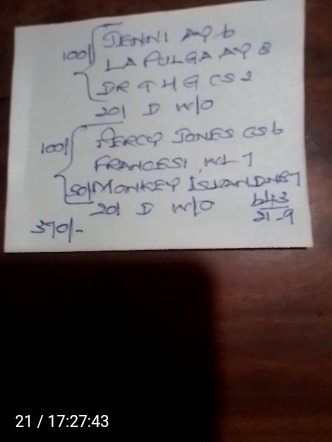 100/ JENNI AP 6
LA PULGA AP 8
DR T H G CS 2
20/ D W/O
100/ PERCY JONES CS 6
FRANCESI WL 7
50/ MONKEY ISLAND
20/ D W/O 643
370/- 21-9
21 / 17:27:43